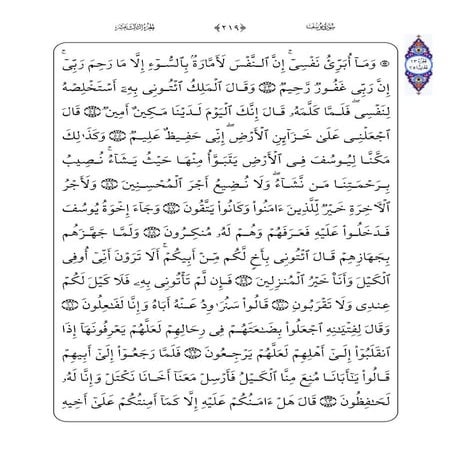 سورة يوسف ﴿٢١٩﴾ الجزء الثالث عشر
۞ وَمَآ أُبَرِّئُ نَفْسِىٓ ۚ إِنَّ ٱلنَّفْسَ لَأَمَّارَةٌۢ بِٱلسُّوٓءِ إِلَّا مَا رَحِمَ رَبِّىٓ ۚ
إِنَّ رَبِّى غَفُورٌ رَّحِيمٌ وَقَالَ ٱلْمَلِكُ ٱئْتُونِى بِهِۦٓ أَسْتَخْلِصْهُ
لِنَفْسِى ۖ فَلَمَّا كَلَّمَهُۥ قَالَ إِنَّكَ ٱلْيَوْمَ لَدَيْنَا مَكِينٌ أَمِينٌ قَالَ
ٱجْعَلْنِى عَلَىٰ خَزَآئِنِ ٱلْأَرْضِ ۖ إِنِّى حَفِيظٌ عَلِيمٌ وَكَذَٰلِكَ
مَكَّنَّا لِيُوسُفَ فِى ٱلْأَرْضِ يَتَبَوَّأُ مِنْهَا حَيْثُ يَشَآءُ ۚ نُصِيبُ
بِرَحْمَتِنَا مَن نَّشَآءُ ۖ وَلَا نُضِيعُ أَجْرَ ٱلْمُحْسِنِينَ وَلَأَجْرُ
ٱلْـَٔاخِرَةِ خَيْرٌ لِّلَّذِينَ ءَامَنُوا۟ وَكَانُوا۟ يَتَّقُونَ وَجَآءَ إِخْوَةُ يُوسُفَ
فَدَخَلُوا۟ عَلَيْهِ فَعَرَفَهُمْ وَهُمْ لَهُۥ مُنكِرُونَ وَلَمَّا جَهَّزَهُم
بِجَهَازِهِمْ قَالَ ٱئْتُونِى بِأَخٍ لَّكُم مِّنْ أَبِيكُمْ ۚ أَلَا تَرَوْنَ أَنِّىٓ أُوفِى
ٱلْكَيْلَ وَأَنَا۠ خَيْرُ ٱلْمُنزِلِينَ فَإِن لَّمْ تَأْتُونِى بِهِۦ فَلَا كَيْلَ لَكُمْ
عِندِى وَلَا تَقْرَبُونِ قَالُوا۟ سَنُرَٰوِدُ عَنْهُ أَبَاهُ وَإِنَّا لَفَٰعِلُونَ
وَقَالَ لِفِتْيَٰنِهِ ٱجْعَلُوا۟ بِضَٰعَتَهُمْ فِى رِحَالِهِمْ لَعَلَّهُمْ يَعْرِفُونَهَآ إِذَا
ٱنقَلَبُوٓا۟ إِلَىٰٓ أَهْلِهِمْ لَعَلَّهُمْ يَرْجِعُونَ فَلَمَّا رَجَعُوٓا۟ إِلَىٰٓ أَبِيهِمْ
قَالُوا۟ يَٰٓأَبَانَا مُنِعَ مِنَّا ٱلْكَيْلُ فَأَرْسِلْ مَعَنَآ أَخَانَا نَكْتَلْ وَإِنَّا لَهُۥ
لَحَٰفِظُونَ قَالَ هَلْ ءَامَنُكُمْ عَلَيْهِ إِلَّا كَمَآ أَمِنتُكُمْ عَلَىٰٓ أَخِيهِ